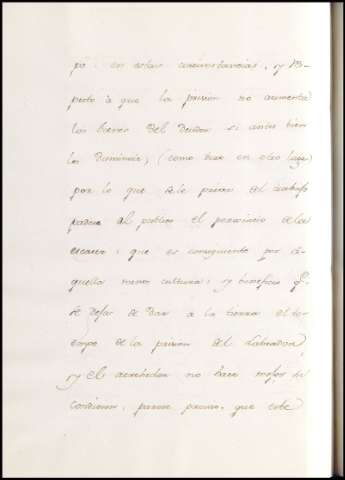 pò: en estas circunstancias, y res-
pecto à que la prision no aumenta
los bienes del Deudor si antes bien
los disminuie, (como dixe en otro lugar)
por lo que se le priva del trabajo
padece el publico el perjuicio de la
escases: que es consiguiente por a-
quella menos cultura: y beneficio q.
se dejas de dar a la tierra el ti-
empo de la prision del Labrador,
y el acrehedor no hace mejor su
condicion: parece preciso, que este